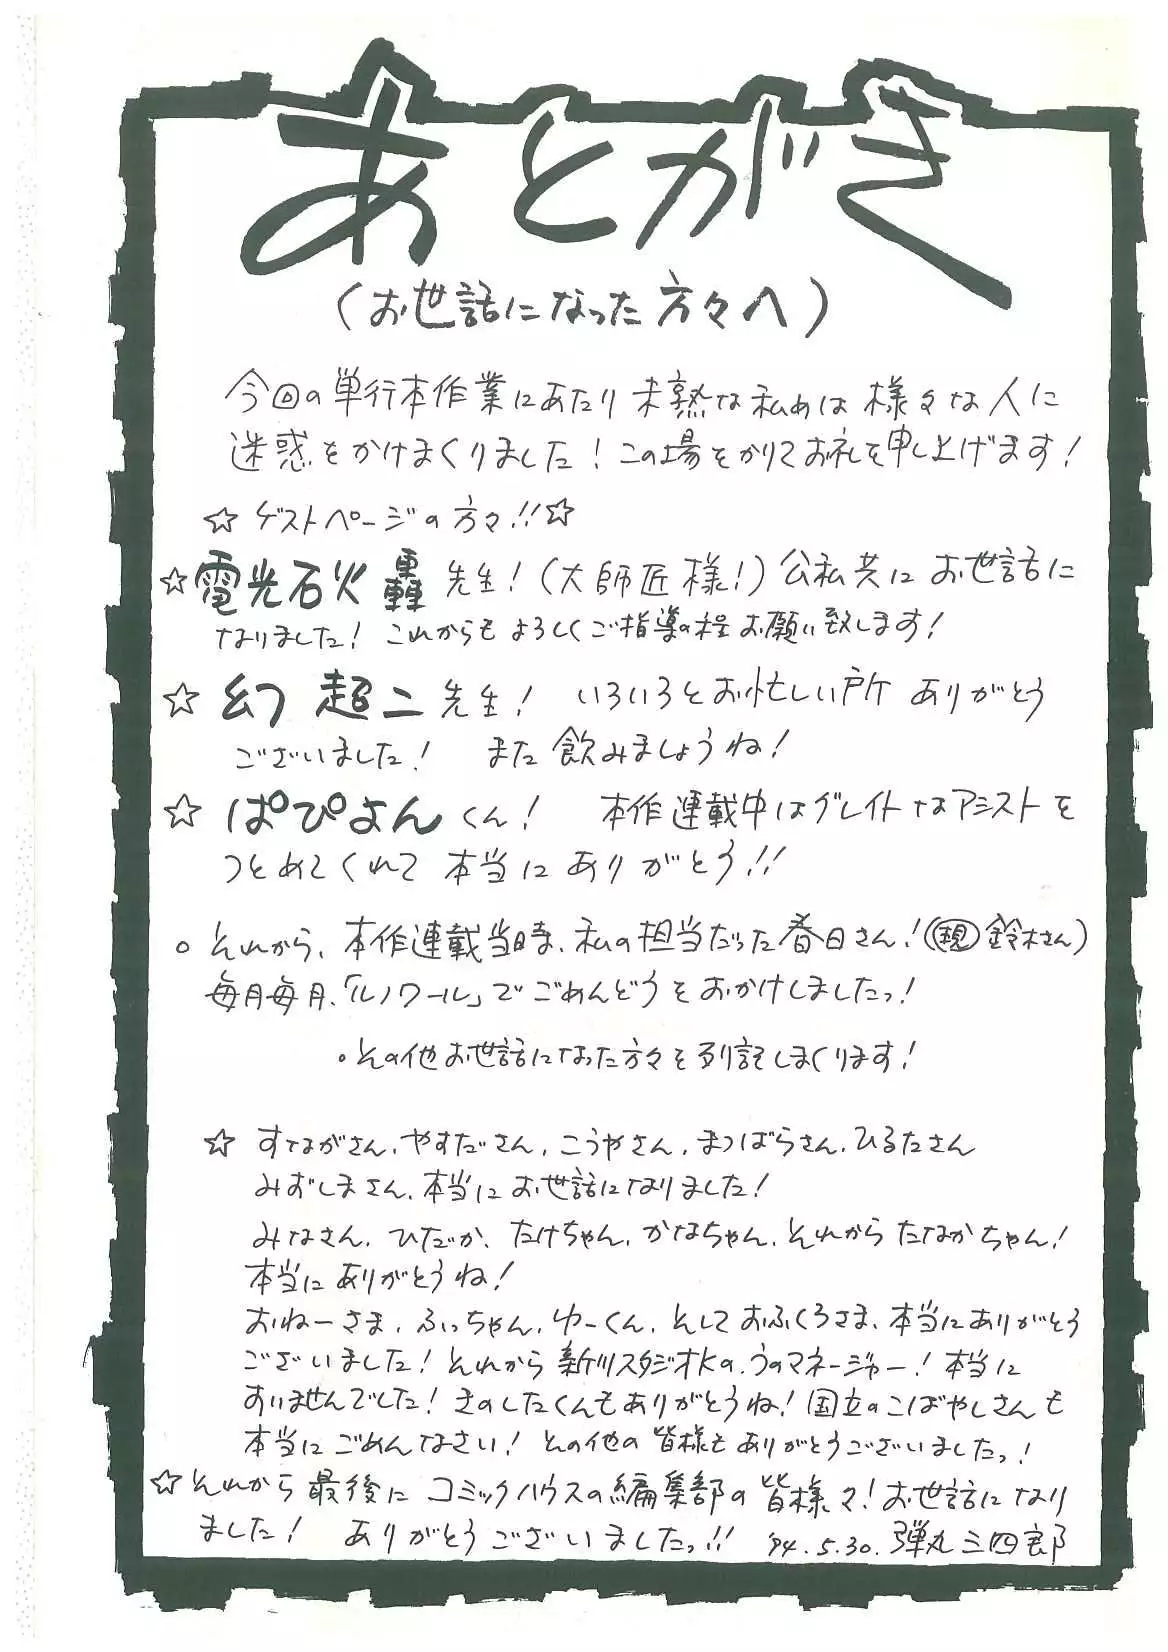 あとがき
(お世話になった方々へ)
今回の単行本作業にあたり未熟な私めは様々な人に
迷惑をかけまくりました!この場をかりてお礼を申し上げます!
☆ゲストページの方々!!☆
☆電光石火轟先生!(大師匠様!)公私共にお世話に
なりました!これからもよろしくご指導の程お願い致します!
☆幻超二先生!いろいろとお忙しい所ありがとう
ございました!また飲みましょうね!
☆ぱぴよんくん!本作連載中はグレイトなアシストを
つとめてくれて本当にありがとう!!
○それから、本作連載当時、私の担当だった春日さん!(現鈴木さん)
毎月毎月、「ルノワール」でごめんどうをおかけしましたっ!
○その他お世話になった方々を列記しまくります!
☆すながさん、やすださん、こうやさん、まつばらさん、ひるたさん
みずしまさん、本当にお世話になりました!
みなさん、ひだか、たけちゃん、かなちゃん、それからたなかちゃん!
本当にありがとうね!
おねーさま、ふっちゃん、ゆーくん、そしておふくろさま、本当にありがとう
ございました!それから新川スタジオKの、うのマネージャー!本当に
すいませんでした!きのしたくんもありがとうね!国立のこばやしさんも
本当にごめんなさい!その他の皆様もありがとうございましたっ!
☆それから最後にコミックハウスの編集部の皆様々!お世話になり
ました!ありがとうございましたっ!!'94.5.30.弾丸三四郎